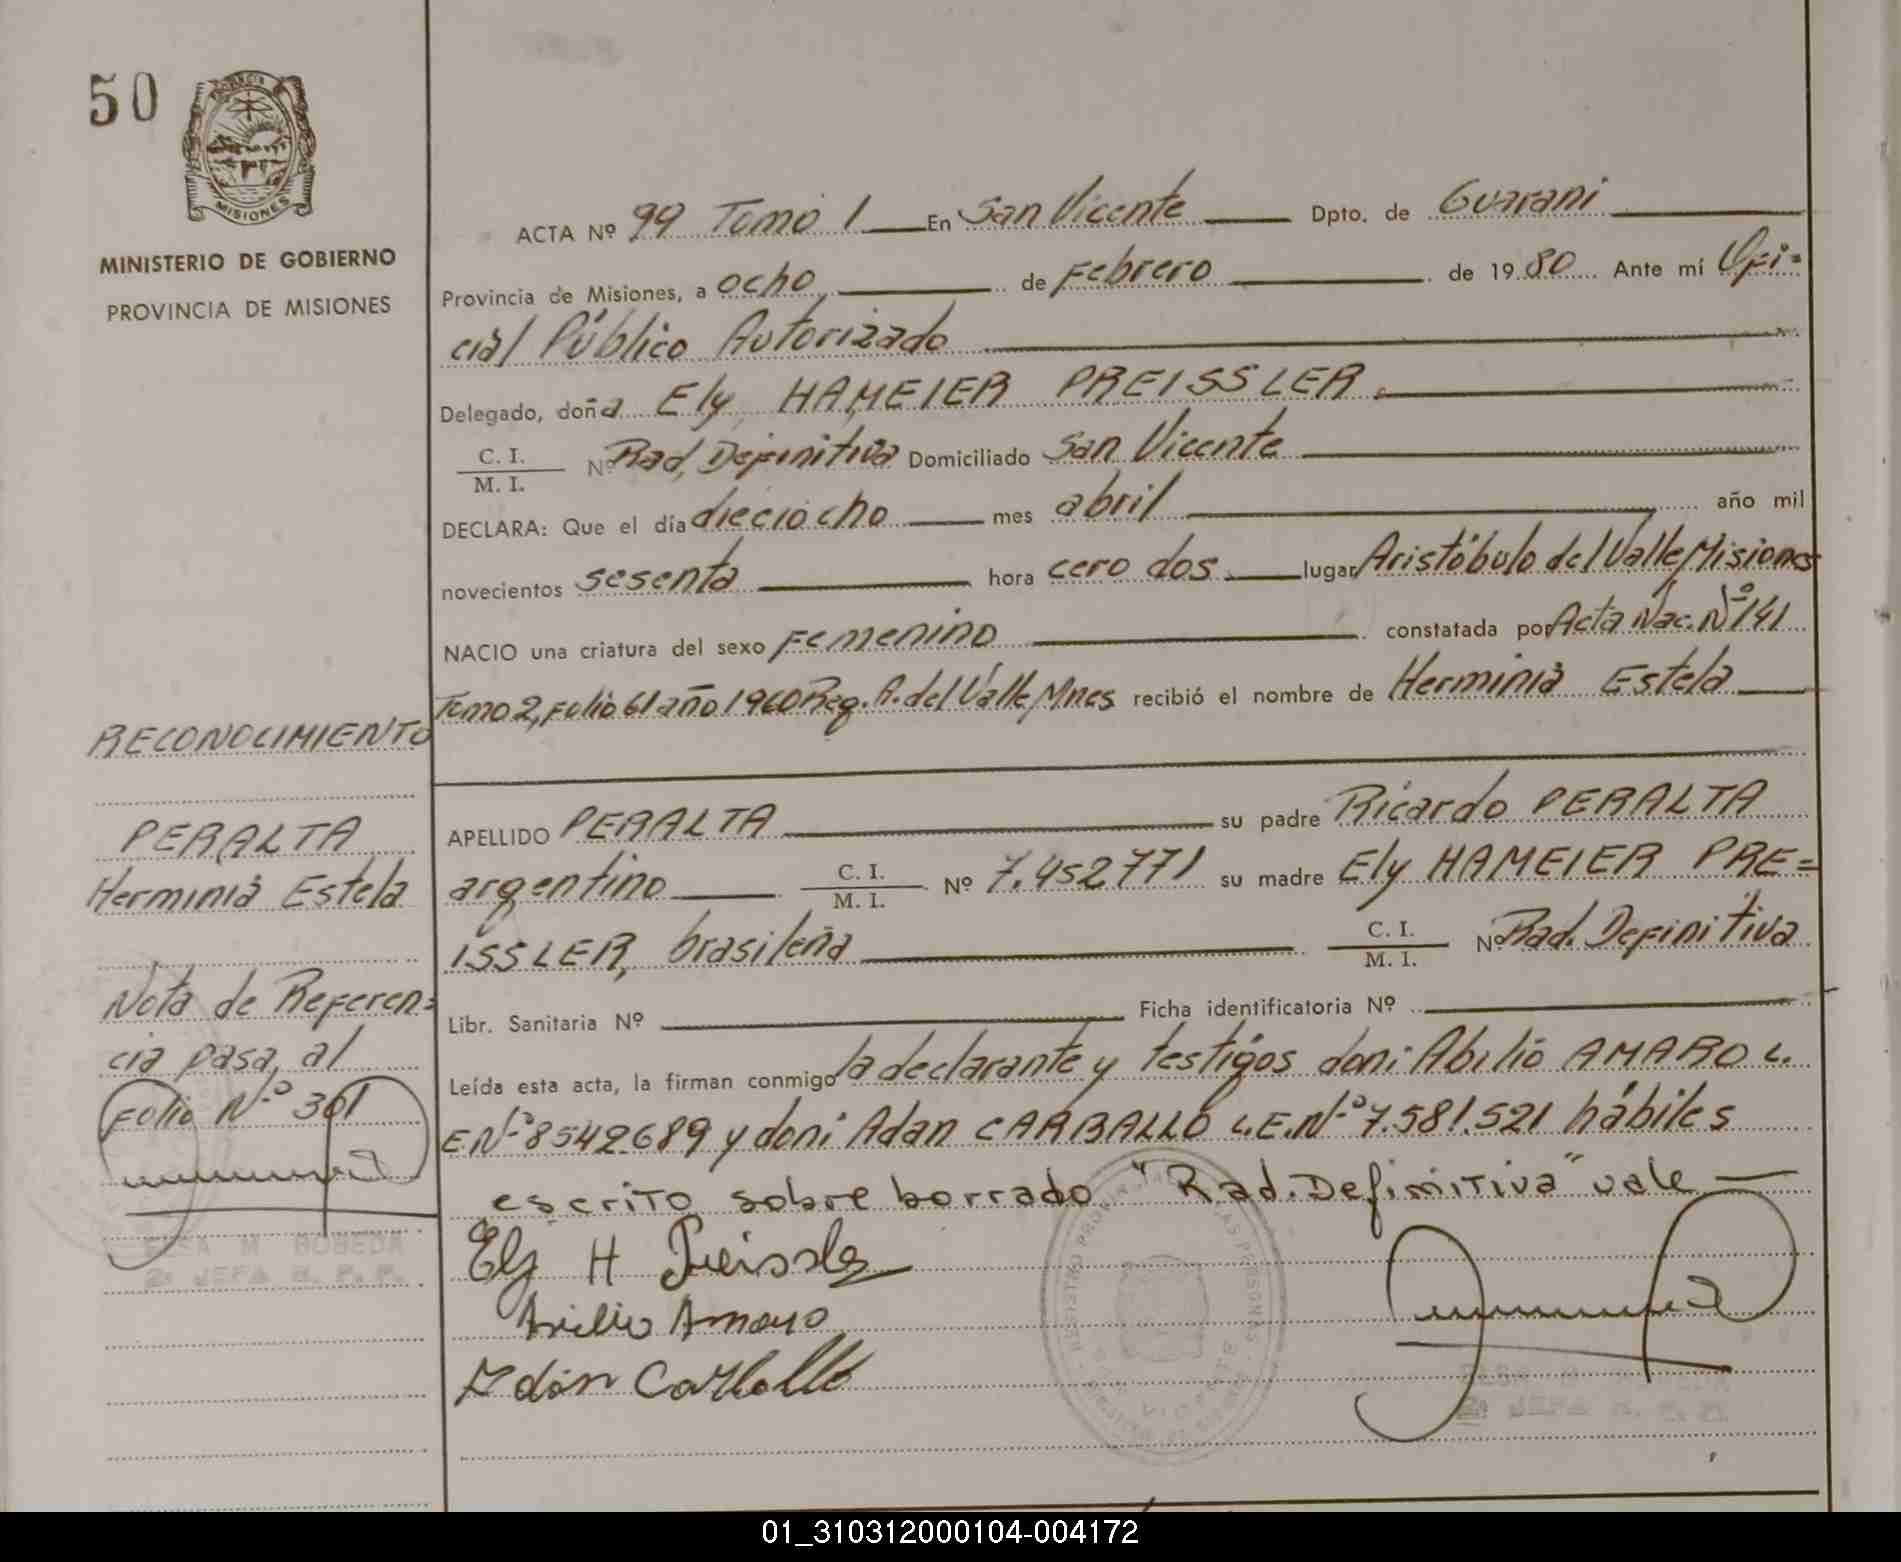 50
PROVINCIA
MISIONES
MINISTERIO DE GOBIERNO
PROVINCIA DE MISIONES
RECONOCIMIENTO
PERALTA
Herminia Estela
Nota de Referen=
cia pasa al
Folio N.º 361
ELSA M. BOBEDA
2º JEFA R. P. P.
ACTA Nº 99 Tomo 1 En San Vicente Dpto. de Guarani
Provincia de Misiones, a ocho de Febrero de 1980 Ante mí Ofi=
cial Público Autorizado
Delegado, doña Ely HAMEIER PREISSLER.
C. I. / M. I. Nº Rad. Definitiva Domiciliado San Vicente
DECLARA: Que el día dieciocho mes abril año mil
novecientos sesenta hora cero dos lugar Aristóbulo del Valle Misiones
NACIO una criatura del sexo Femenino constatada por Acta Nac. Nº 141
Tomo 2, Folio 61 año 1960 Reg. A. del Valle, Mnes recibió el nombre de Herminia Estela
APELLIDO PERALTA su padre Ricardo PERALTA
argentino C. I. / M. I. Nº 7.452771 su madre Ely HAMEIER PRE=
ISSLER, brasileña C. I. / M. I. Nº Rad. Definitiva
Libr. Sanitaria Nº Ficha identificatoria Nº
Leída esta acta, la firman conmigo la declarante y testigos don: Abilio AMARO L.
E.Nº 8542689 y don: Adan CARBALLO L.E.Nº 7.581.521 hábiles
escrito sobre borrado "Rad. Definitiva" vale
Ely H Preissler
Avilio Amaro
Adán Carballo
2º JEFA R. P. P.
01_310312000104-004172